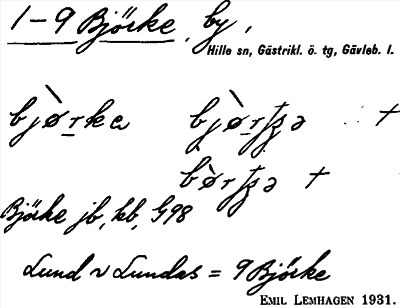 1-9 Björke, by,
Hille sn, Gästrikl. ö. tg, Gävleb. l.
bjørka bjørʈʂə +
børʈʂə +
Björke jb, kb, G98
Lund v Lundas = 9 Björke
EMIL LEMHAGEN 1931.